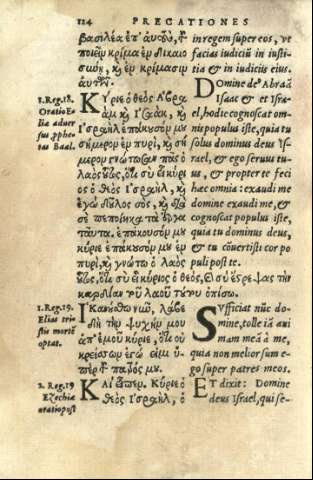 114 PRECATIONES
βασιλέα ἐπ' αὐτοῦ, τοῦ
ποιεῖν κρίμα ἐν δικαιο
σύνῃ, καὶ ἐν κρίμασιν
αὐτοῦ.
in regem super eos, ve
facias iudiciũ in iusti-
tia & in iudiciis eius.
1. Reg. 18.
Oratio E-
liæ aduer
sus ꝓphe
tas Baal.
Κύριε ὁ θεὸς Αβρα
ὰμ καὶ Ισαὰκ, καὶ
Ισραὴλ ἐπάκουσόν μου
σήμερον ἐν πυρὶ, καὶ σή
μερον γνώτωσαν πᾶς ὁ
λαὸς οὗτος, ὅτι σὺ εἶ κύρι
ος ὁ θεὸς Ισραὴλ, καὶ
ἐγὼ δοῦλος σὸς, καὶ διὰ
σὲ πεποίηκα τὰ ἔργα
ταῦτα. ἐπάκουσόν μου
κύριε ἐπάκουσόν μου ἐν
πυρὶ, καὶ γνώτω ὁ λαὸς
οὗτος, ὅτι σὺ εἶ κύριος ὁ θεὸς, καὶ σὺ ἔστρεψας τὴν
καρδίαν τοῦ λαοῦ τούτου ὀπίσω.
Domine de' Abraã
Isaac & et Isra-
el, hodie cognoscat om-
nis populus iste, quia tu
solus dominus deus Is-
rael, & ego seruus tu-
us, & propter te feci
hæc omnia: exaudi me
domine exaudi me, &
cognoscat populus iste,
quia tu dominus deus,
& tu cõuertisti cor po
puli post te.
1. Reg. 19.
Elias tri-
stis mortẽ
optat.
Ἱκανούσθω νῦν, λάβε
δὴ τὴν ψυχήν μου
ἀπ' ἐμοῦ κύριε, ὅτι οὐ
κρείσσων ἐγώ εἰμι ὑ-
πὲρ τοὺς πατέρας μου.
Sufficiat nũc do-
mine, tolle iã ani
mam meã à me,
quia non melior sum e-
go super patres meos.
2. Reg. 19
Ezechiæ
oratio post
Καὶ εἶπεν. Κύριε ὁ
θεὸς Ισραὴλ, ὁ
Et dixit: Domine
deus Israel, qui se-